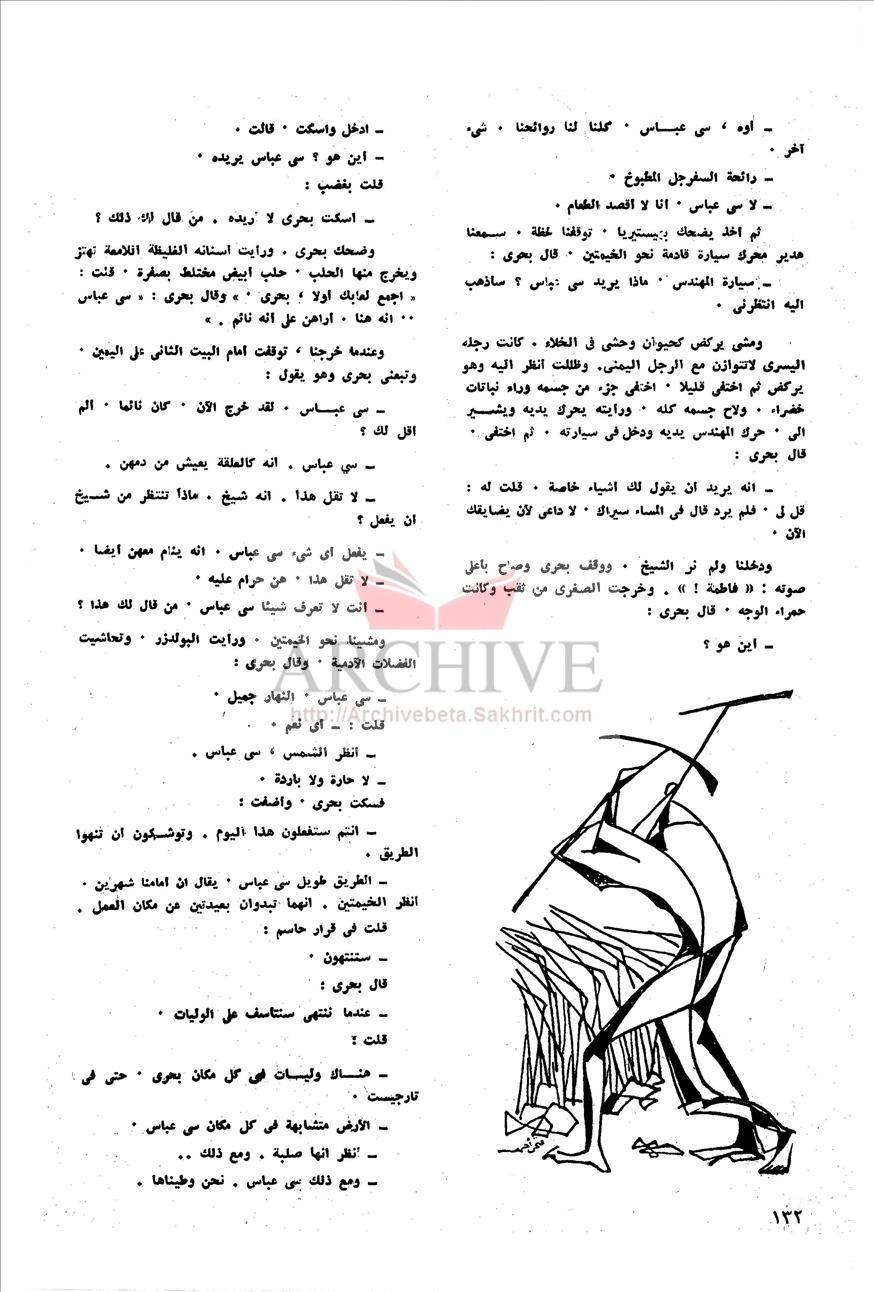 ـ أوه ، سى عبـــاس ٠ كلنا لنا روائحنا ٠ شىء
آخر ٠
ـ رائحة السفرجل المطبوخ ٠
ـ لا سى عباس ٠ أنا لا أقصد الطعام ٠
ثم أخذ يضحك بهيستيريا ٠ توقفنا لحظة ٠ سـمعنا
هدير محرك سيارة قادمة نحو الخيمتين ٠ قال بحرى :
ـ سيارة المهندس ٠ ماذا يريد سى عباس ؟ سأذهب
اليه انتظرنى ٠
ومشى يركض كحيوان وحشى فى الخلاء ٠ كانت رجله
اليسرى لاتتوازن مع الرجل اليمنى٠ وظللت أنظر اليه وهو
يركض ثم اختفى قليلا ٠ اختفى جزء من جسمه وراء نباتات
خضراء ٠ ولاح جسمه كله ٠ ورأيته يحرك يديه ويشـــير
الى ٠ حرك المهندس يديه ودخل فى سيارته ٠ ثم اختفى ٠
قال بحرى :
ـ انه يريد أن يقول لك أشياء خاصة ٠ قلت له :
قل لى ٠ فلم يرد قال فى المساء سيراك ٠ لا داعى لأن يضايقك
الآن ٠
ودخلنا ولم نر الشيخ ٠ ووقف بحرى وصاح بأعلى
صوته : « فاطمة ! » ٠ وخرجت الصغرى من ثقب وكانت
حمراء الوجه ٠ قال بحرى :
ـ أين هو ؟
ـ ادخل واسكت ٠ قالت ٠
ـ أين هو ؟ سى عباس يريده ٠
قلت بغضب :
ـ اسكت بحرى لا أريده ٠ من قال لك ذلك ؟
وضحك بحرى ٠ ورأيت أسنانه الغليظة اللامعة تهتز
ويخرج منها الحلب ٠ حلب أبيض مختلط بصفرة ٠ قلت :
« اجمع لعابك أولا ، بحرى ٠ » وقال بحرى : « سى عباس
٠٠ انه هنا ٠ أراهن على أنه نائم ٠ »
وعندما خرجنا ، توقفت أمام البيت الثانى على اليمين ٠
وتبعنى بحرى وهو يقول :
ـ سى عبـــاس ٠ لقد خرج الآن ٠ كان نائما ٠ ألم
أقل لك ؟
ـ سي عباس ٠ انه كالعلقة يعيش من دمهن ٠
ـ لا تقل هذا ٠ انه شيخ ٠ ماذا تنتظر من شـــيخ
أن يفعل ؟
ـ يفعل أى شىء سى عباس ٠ انه ينام معهن أيضا ٠
ـ لا تقل هذا ٠ هن حرام عليه ٠
ـ أنت لا تعرف شيئا سى عباس ٠ من قال لك هذا ؟
ومشينا نحو الخيمتين ٠ ورأيت البولدزر ٠ وتحاشيت
الفضلات الآدمية ٠ وقال بحرى :
ـ سى عباس ٠ النهار جميل ٠
قلت : ـ أى نعم ٠
ـ أنظر الشمس ، سى عباس ٠
ـ لا حارة ولا باردة ٠
فسكت بحرى ٠ وأضفت :
ـ أنتم ستفعلون هذا اليوم ٠ وتوشـكون أن تنهوا
الطريق ٠
ـ الطريق طويل سى عباس ٠ يقال ان أمامنا شهرين ٠
أنظر الخيمتين ٠ انهما تبدوان بعيدتين عن مكان العمل ٠
قلت فى قرار حاسم :
ـ ستنتهون ٠
قال بحرى :
ـ عندما ننتهى سنتأسف على الوليات ٠
قلت :
ـ هنـــاك وليــات فى كل مكان بحرى ٠ حتى فى
تارجيست ٠
ـ الأرض متشابهة فى كل مكان سى عباس ٠
ـ أنظر انها صلبة ٠ ومع ذلك ٠٠
ـ ومع ذلك سى عباس ٠ نحن وطيناها ٠
ARCHIVE
http://Archivebeta.Sakhrit.com
١٣٢